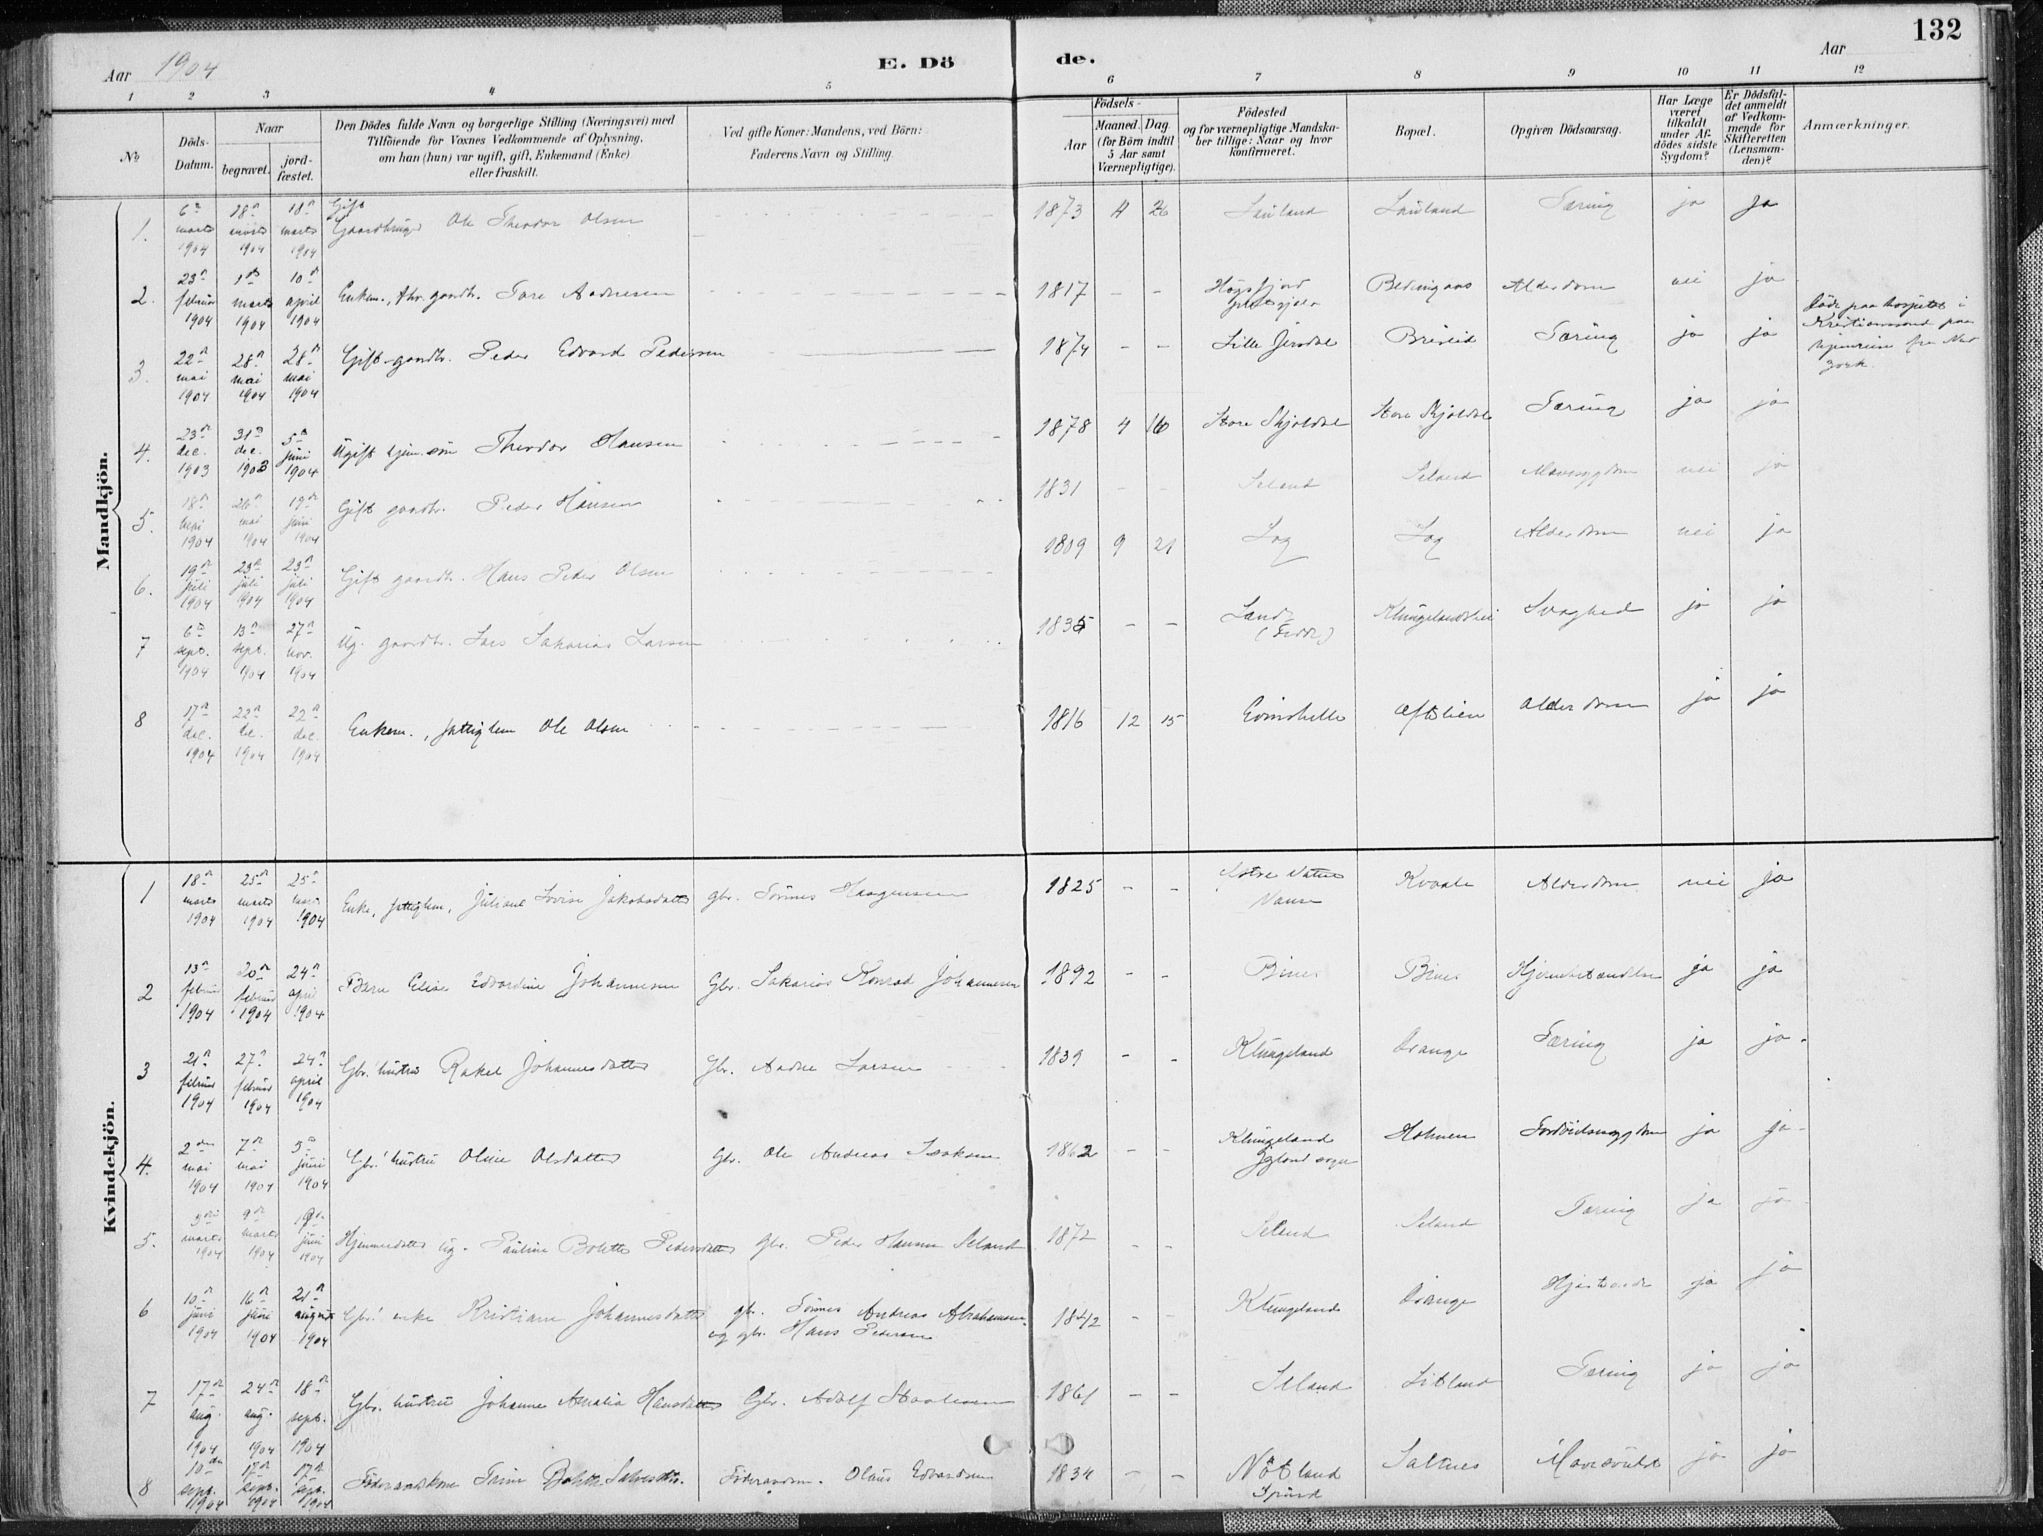 132
Aar 1904
E. Dö de.
Aar
1 2 3 4 5 6 7 8 9 10 11 12
№
Döds-Datum.
Naar
begravet.
jord-fæstet.
Den Dödes fulde Navn og borgerlige Stilling (Næringsvei) med
Tilföiende for Voxnes Vedkommende af Oplysning,
om han (hun) var ugift, gift, Enkemand (Enke)
eller fraskilt.
Ved gifte Koner: Mandens, ved Börn:
Faderens Navn og Stilling.
Födsels-
Aar
Maaned. Dag.
(for Börn indtil
5 Aar samt
Værnepligtige).
Födested
og for værnepligtige Mandska-
ber tillige: Naar og hvor
konfirmeret.
Bopæl.
Opgiven Dödsaarsag.
Har Læge
været
tilkaldt
under Af-
dödes sidste
Sygdom?
Er Dödsfal-
det anmeldt
af Vedkom-
mende for
Skifteretten
(Lensman-
den)?
Anmærkninger.
Mandkjön.
1. 6te marts 1904 18de marts 1904 18de marts 1904 Gift Gaardbruger Ole Theodor Olsen 1873 4 26 Tæring ja ja
2. 23de februar 1904 1ste marts 1904 10de april 1904 Enkem., Tore Aadnesen 1817 - - Høgsfjord Alderdom nei ja
3. 22de mai 1904 28de mai 1904 28de mai 1904 Gift gaardb. Peder Edvard Pedersen 1874 - - Lille Jerdal Briseid Tæring ja ja
Døde paa hospitalet i
Kristianssand paa
hjemreise fra New
York.
4. 23de dec. 1903 31te dec. 1903 5te juni 1904 Ugift hjem. søn Theodor Hansen 1878 4 16 Store Skjoldal Store Skjoldal Tæring ja ja
5. 18de mai 1904 26de mai 1904 19de juni 1904 Gift gaardb. Peder Hansen 1831 - - Seland Seland Mavesygdom nei ja
6. 19de juli 1904 23de juli 1904 23de juli 1904 Gift gaardb. Hans Peder Olsen 1819 9 21 Log Log Alderdom nei ja
7 6te sept. 1904 13de sept. 1904 27de nov. 1904 Ug. gaardb. Lars Sakarias Larsen 1835 - - Land Klungelandshei Svaghed ja ja
8 17de dec. 1904 22de dec. 1904 22de dec. 1904 Enkem., fattiglem Ole Olsen 1816 12 15 Alderdom ja ja
Kvindekjön.
1 18de marts 1904 25de marts 1904 25de mars 1904 Enke, fattiglem, Juliane Lovise Jakobsdatter gbr. Tønnes Haagensen 1825 - - Vanse Kvaale Alderdom nei ja
2 13de februar 1904 20de februar 1904 24de april 1904 Barn Elise Edvardine Johannesen Gbr. Sakarias Konrad Johannesen 1892 - - Bines Bines Hjernebetændelse ja ja
3 21de februar 1904 27de februar 1904 24de april 1904 Gbr.' hustru Rakel Johannesdatter Gbr. Aadne Larsen 1839 - - Klungeland Drange Tæring ja ja
4. 2den mai 1904 7de mai 1904 5te juni 1904 Gbr.' hustru Oline Olsdatter Gbr. Ole Andreas Isaksen 1862 - - Klungeland Holmen ja ja
5. marts 1904 9de marts 1904 19de juni 1904 Hjemmedatter ug. Pauline Bolette Pedersdatter gbr. Peder Hansen Seland 1872 - - Seland Seland Tæring ja ja
6 10de juni 1904 16de juni 1904 21de august 1904 Gbr.' enke Kristiane Johannesdatter gbr. Tønnes Andreas Abrahamsen
og gbr. Hans Pedersen 1842 - - Klungeland Drange ja ja
7 17de aug. 1904 24de aug. 1904 18de sept. 1904 Gbr. hustru Johanne Amalia Hansdatter Gbr. Adolf Staalesen 1861 - - Seland Litland Tæring ja ja
8 10de sept. 1904 17de sept. 1904 17de sept. 1904 Føderaadskone Trine Bolette Salvesdtr. Føderaadsm. Olaus Edvardsen 1834 - - Nøtland Spind Saltnes ja ja